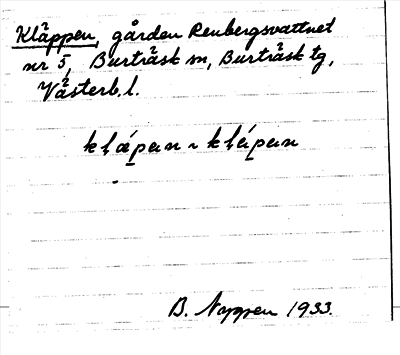 Kläppen, gården Renbergsvattnet
nr 5, Burträsk sn, Burträsk tg,
Västerb. l.
B. Nyppen 1933.